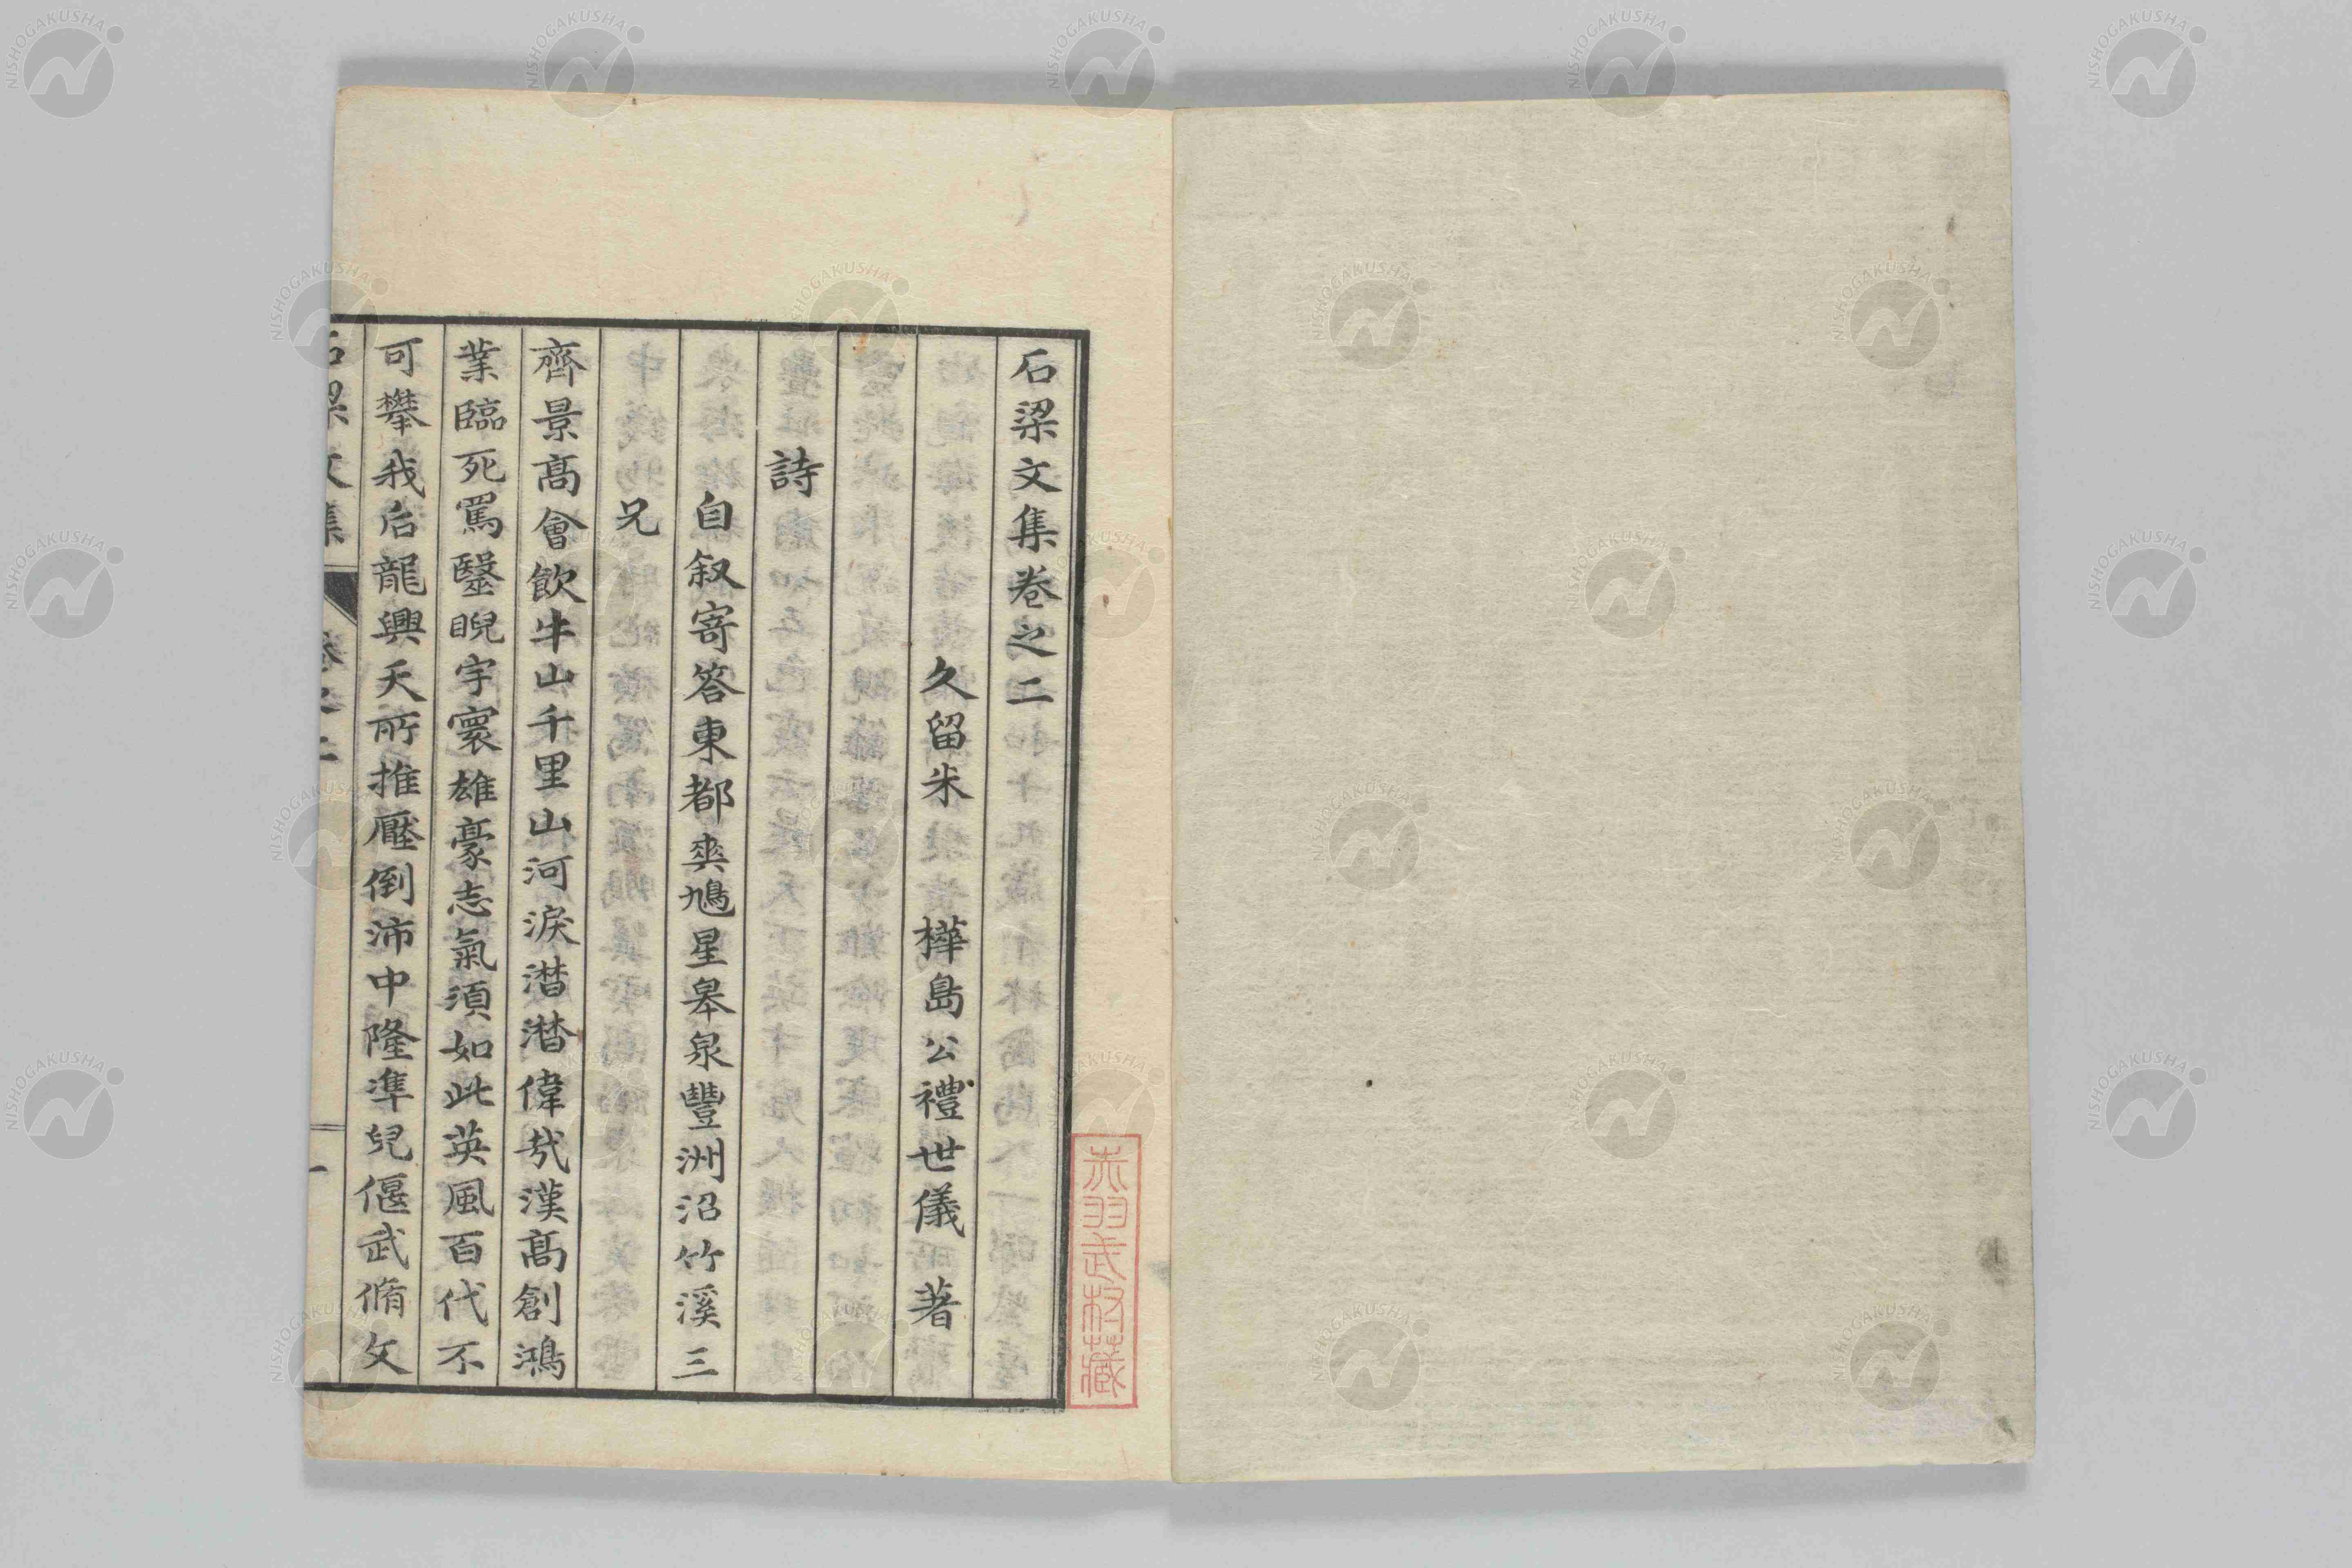 石梁文集卷之二
久留米 樺島公禮世儀 著
詩
自叙寄答東都爽鳩星皋泉豐洲沼竹溪三
兄
齊景髙會飲牛山千里山河淚潸潸偉哉漢髙創鴻
業臨死罵毉睨宇寰雄豪志氣須如此英風百代不
可攀我后龍興天所推壓倒沛中隆準兒偃武脩文
石梁文集 卷之二 一
赤羽武材藏
NISHOGAKUSHA